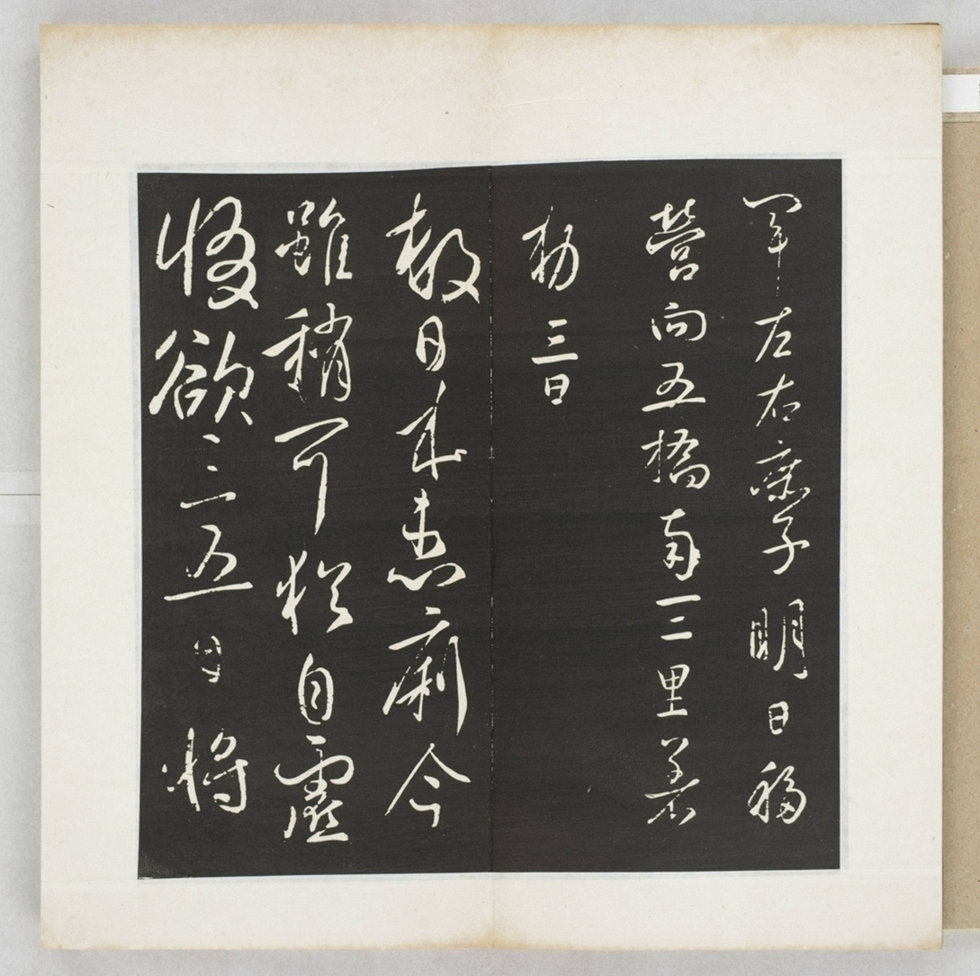 軍左右庶子明日移
營向五橋南一二里著
勅 三日
數日來患痢今
雖稍可猶自虛
惙欲三五日將